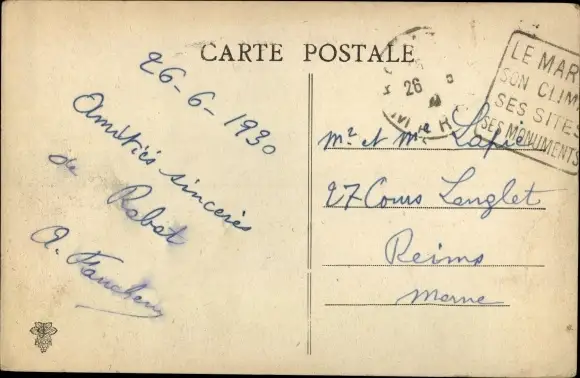 CARTE POSTALE
26-6-1930
Amitiés sincères
de Rabat
A.
26
LE MAR
SON CLIM
SES SITES
SES MONUMENTS
Mr et Mme Lapie
27 Cours Langlet
Reims
Marne